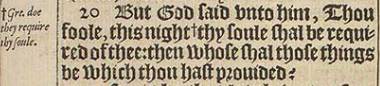 †Gre. doe
they require
thy soule.
20 But God said vnto him, Thou
foole, this night †thy soule shal be requi-
red of thee: then whose shal those things
be which thou hast prouided?